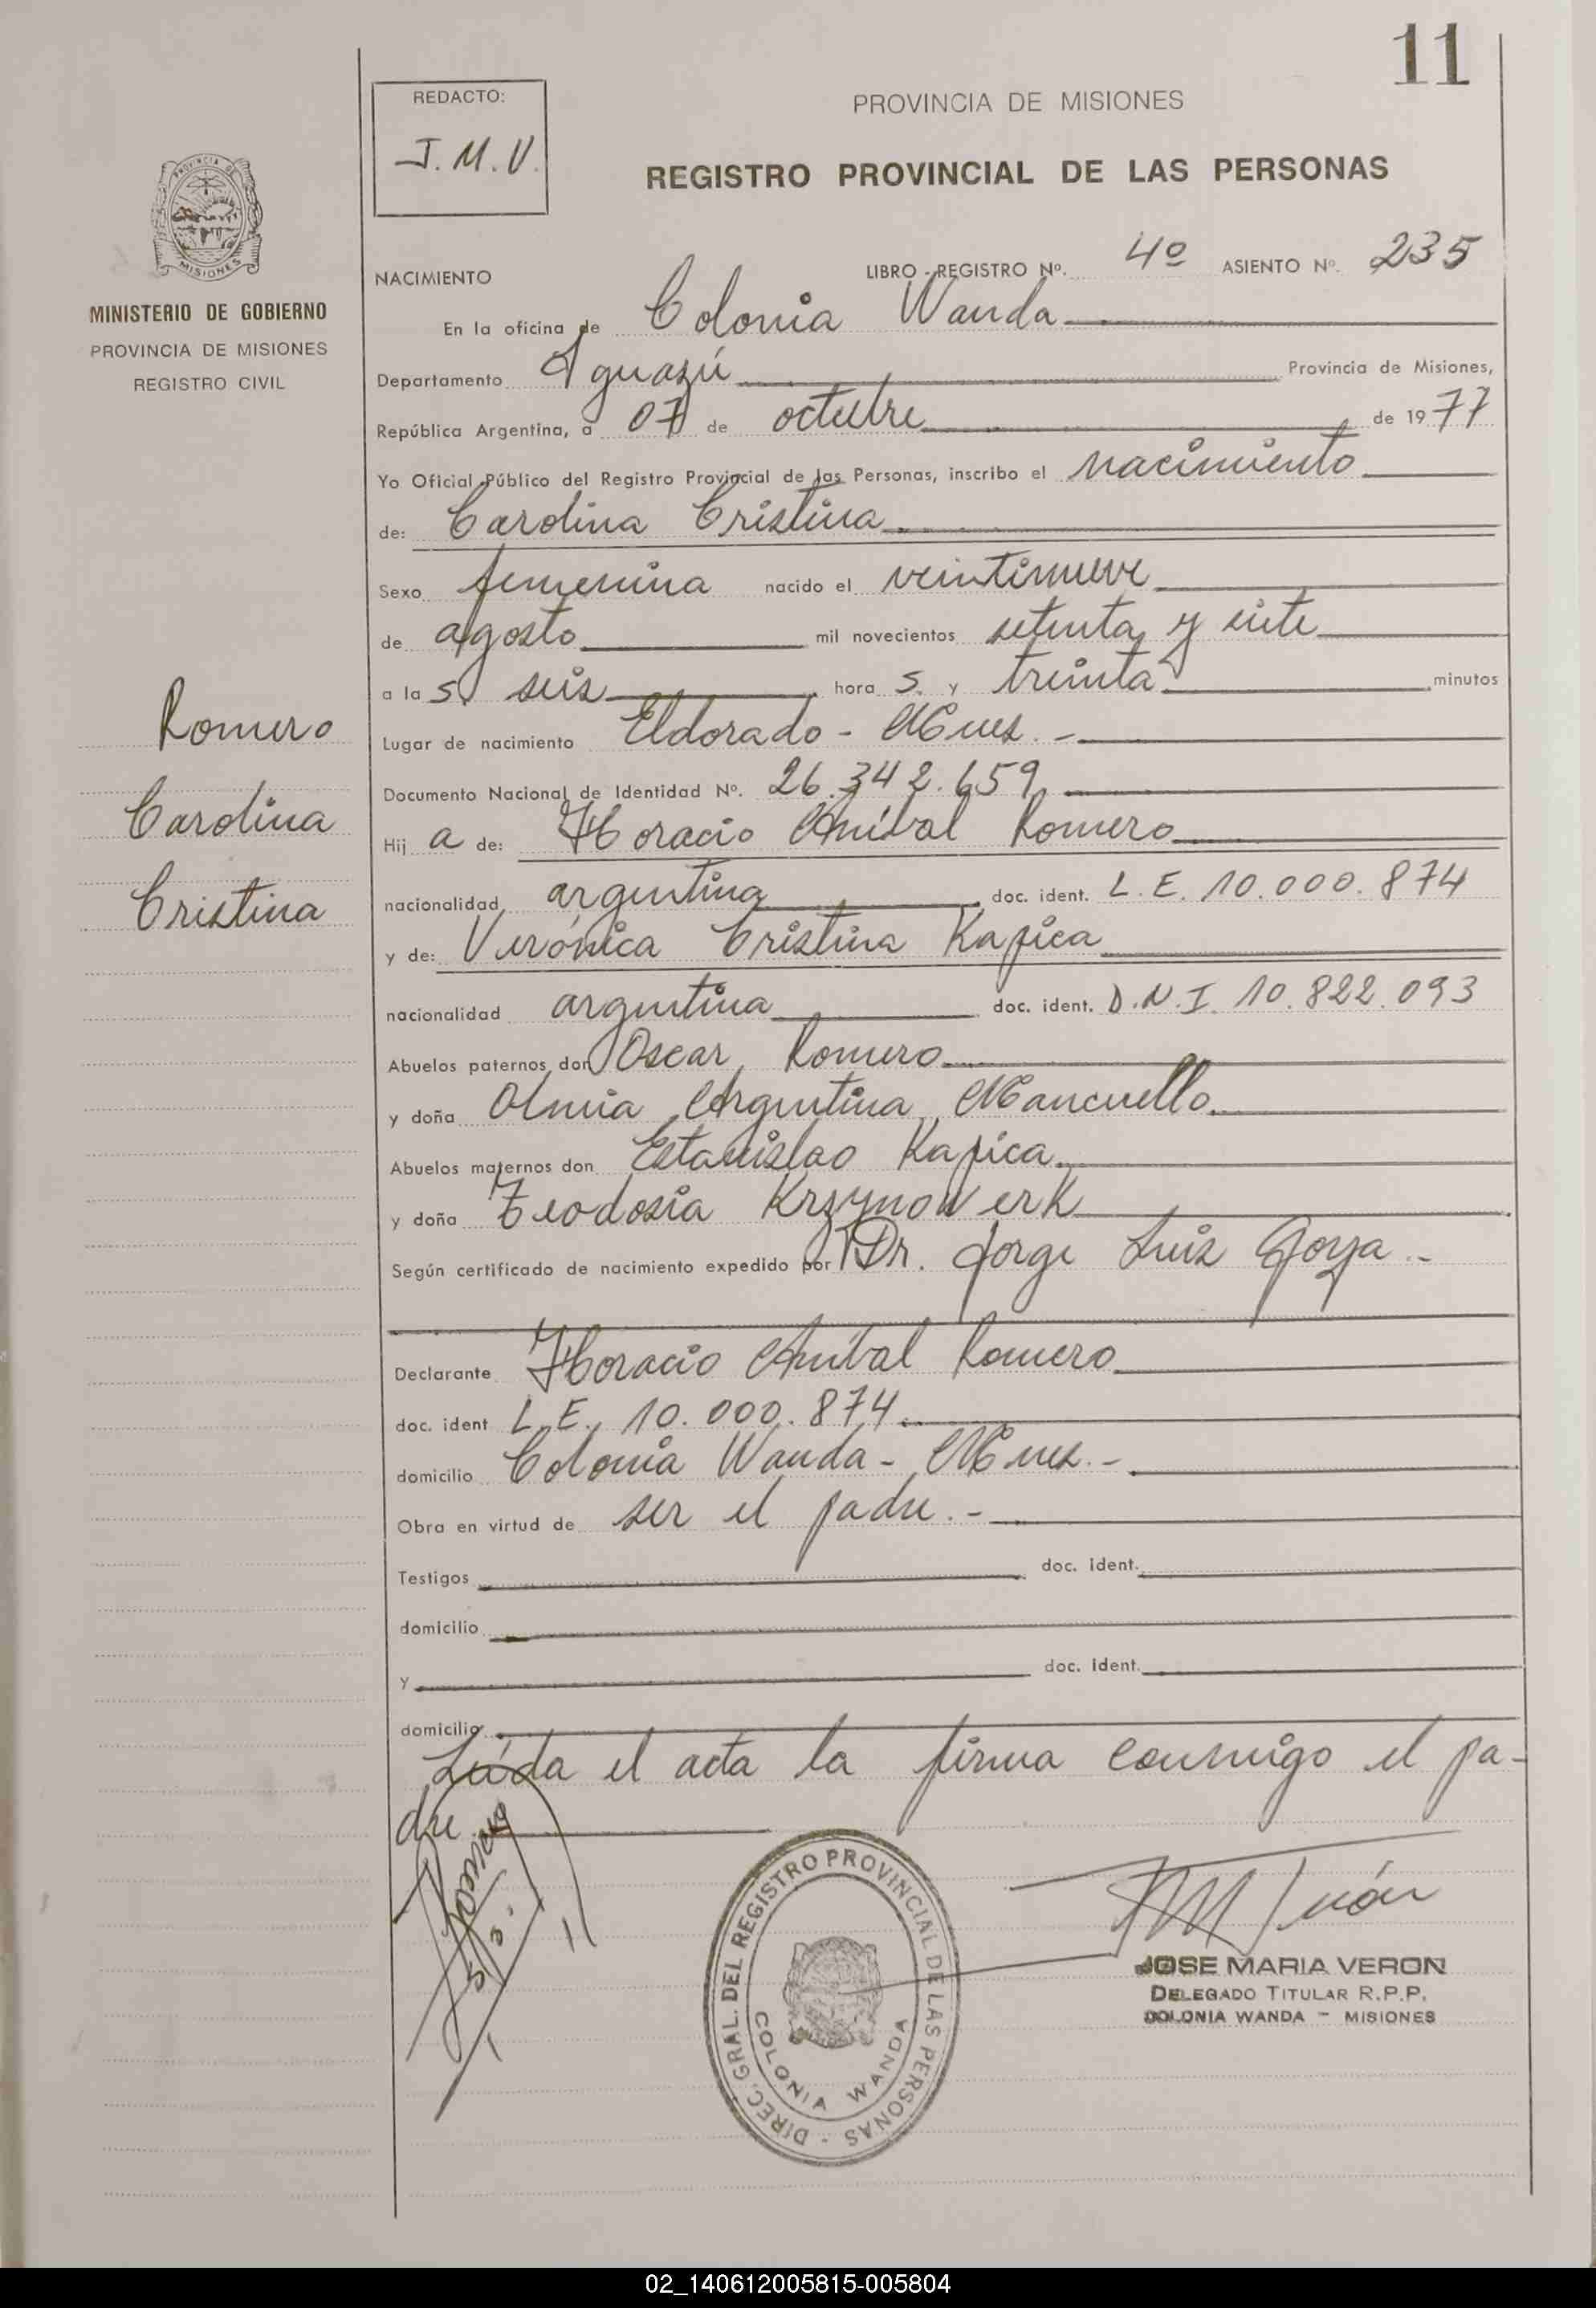 11
REDACTO:
J.M.V.
PROVINCIA DE MISIONES
REGISTRO PROVINCIAL DE LAS PERSONAS
PROVINCIA DE
MISIONES
MINISTERIO DE GOBIERNO
PROVINCIA DE MISIONES
REGISTRO CIVIL
NACIMIENTO LIBRO - REGISTRO Nº. 4º ASIENTO Nº. 235
En la oficina de Colonia Wanda
Departamento Iguazú Provincia de Misiones,
República Argentina, a 07 de octubre de 1977
Yo Oficial Público del Registro Provincial de las Personas, inscribo el nacimiento
de: Carolina Cristina
Sexo femenina nacido el veintinueve
de agosto mil novecientos setenta y siete
a la s seis hora s. y treinta minutos
Lugar de nacimiento Eldorado - Mnes. -
Documento Nacional de Identidad Nº. 26.342.659
Hij a de: Horacio Aníbal Romero
nacionalidad argentina doc. ident. L.E. 10.000.874
y de: Verónica Cristina Kapica
nacionalidad argentina doc. ident. D.N.I. 10.822.093
Abuelos paternos don Oscar Romero
y doña Olmia Argentina Mancuello
Abuelos maternos don Estanislao Kapica
y doña Teodosia Krzynowerk
Según certificado de nacimiento expedido por Dr. Jorge Luis Goya -
Declarante Horacio Aníbal Romero
doc. ident L.E. 10.000.874
domicilio Colonia Wanda - Mnes. -
Obra en virtud de ser el padre. -
Testigos doc. ident.
domicilio
y doc. ident.
domicilio
Leída el acta la firma conmigo el pa-
dre
Romero
Carolina
Cristina
DIREC. GRAL. DEL REGISTRO PROVINCIAL DE LAS PERSONAS -
COLONIA WANDA
JOSE MARIA VERON
DELEGADO TITULAR R.P.P.
COLONIA WANDA - MISIONES
02_140612005815-005804